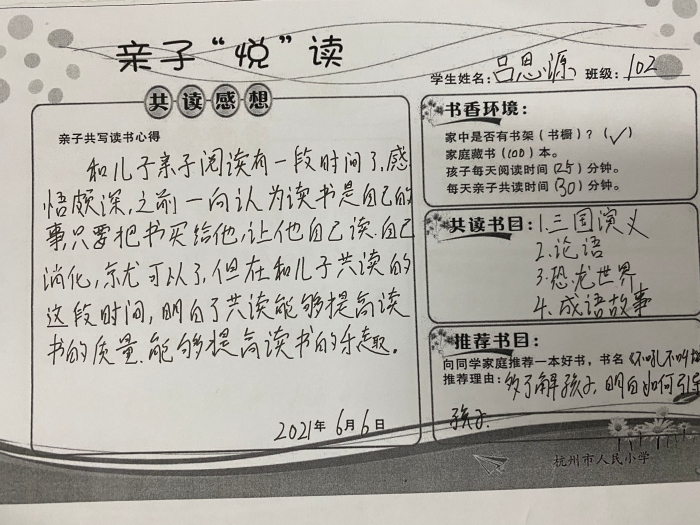 亲子“悦”读
学生姓名：吕思源 班级：102
共读感想
亲子共写读书心得
和儿子亲子阅读有一段时间了,感
悟颇深,之前一向认为读书是自己的
事只要把书买给他,让他自己读.自己
消化,就可以了,但在和儿子共读的
这段时间,明白了共读能够提高读
书的质量.能够提高读书的乐趣。
2021年6月6日
书香环境：
家中是否有书架（书橱）？（✓）
家庭藏书（100）本。
孩子每天阅读时间（25）分钟。
每天亲子共读时间（30）分钟。
共读书目：1.三国演义
2.论语
3.恐龙世界
4.成语故事
推荐书目：
向同学家庭推荐一本好书，书名《不吼不叫
推荐理由：多了解孩子,明白如何引导
孩子.
杭州市人民小学